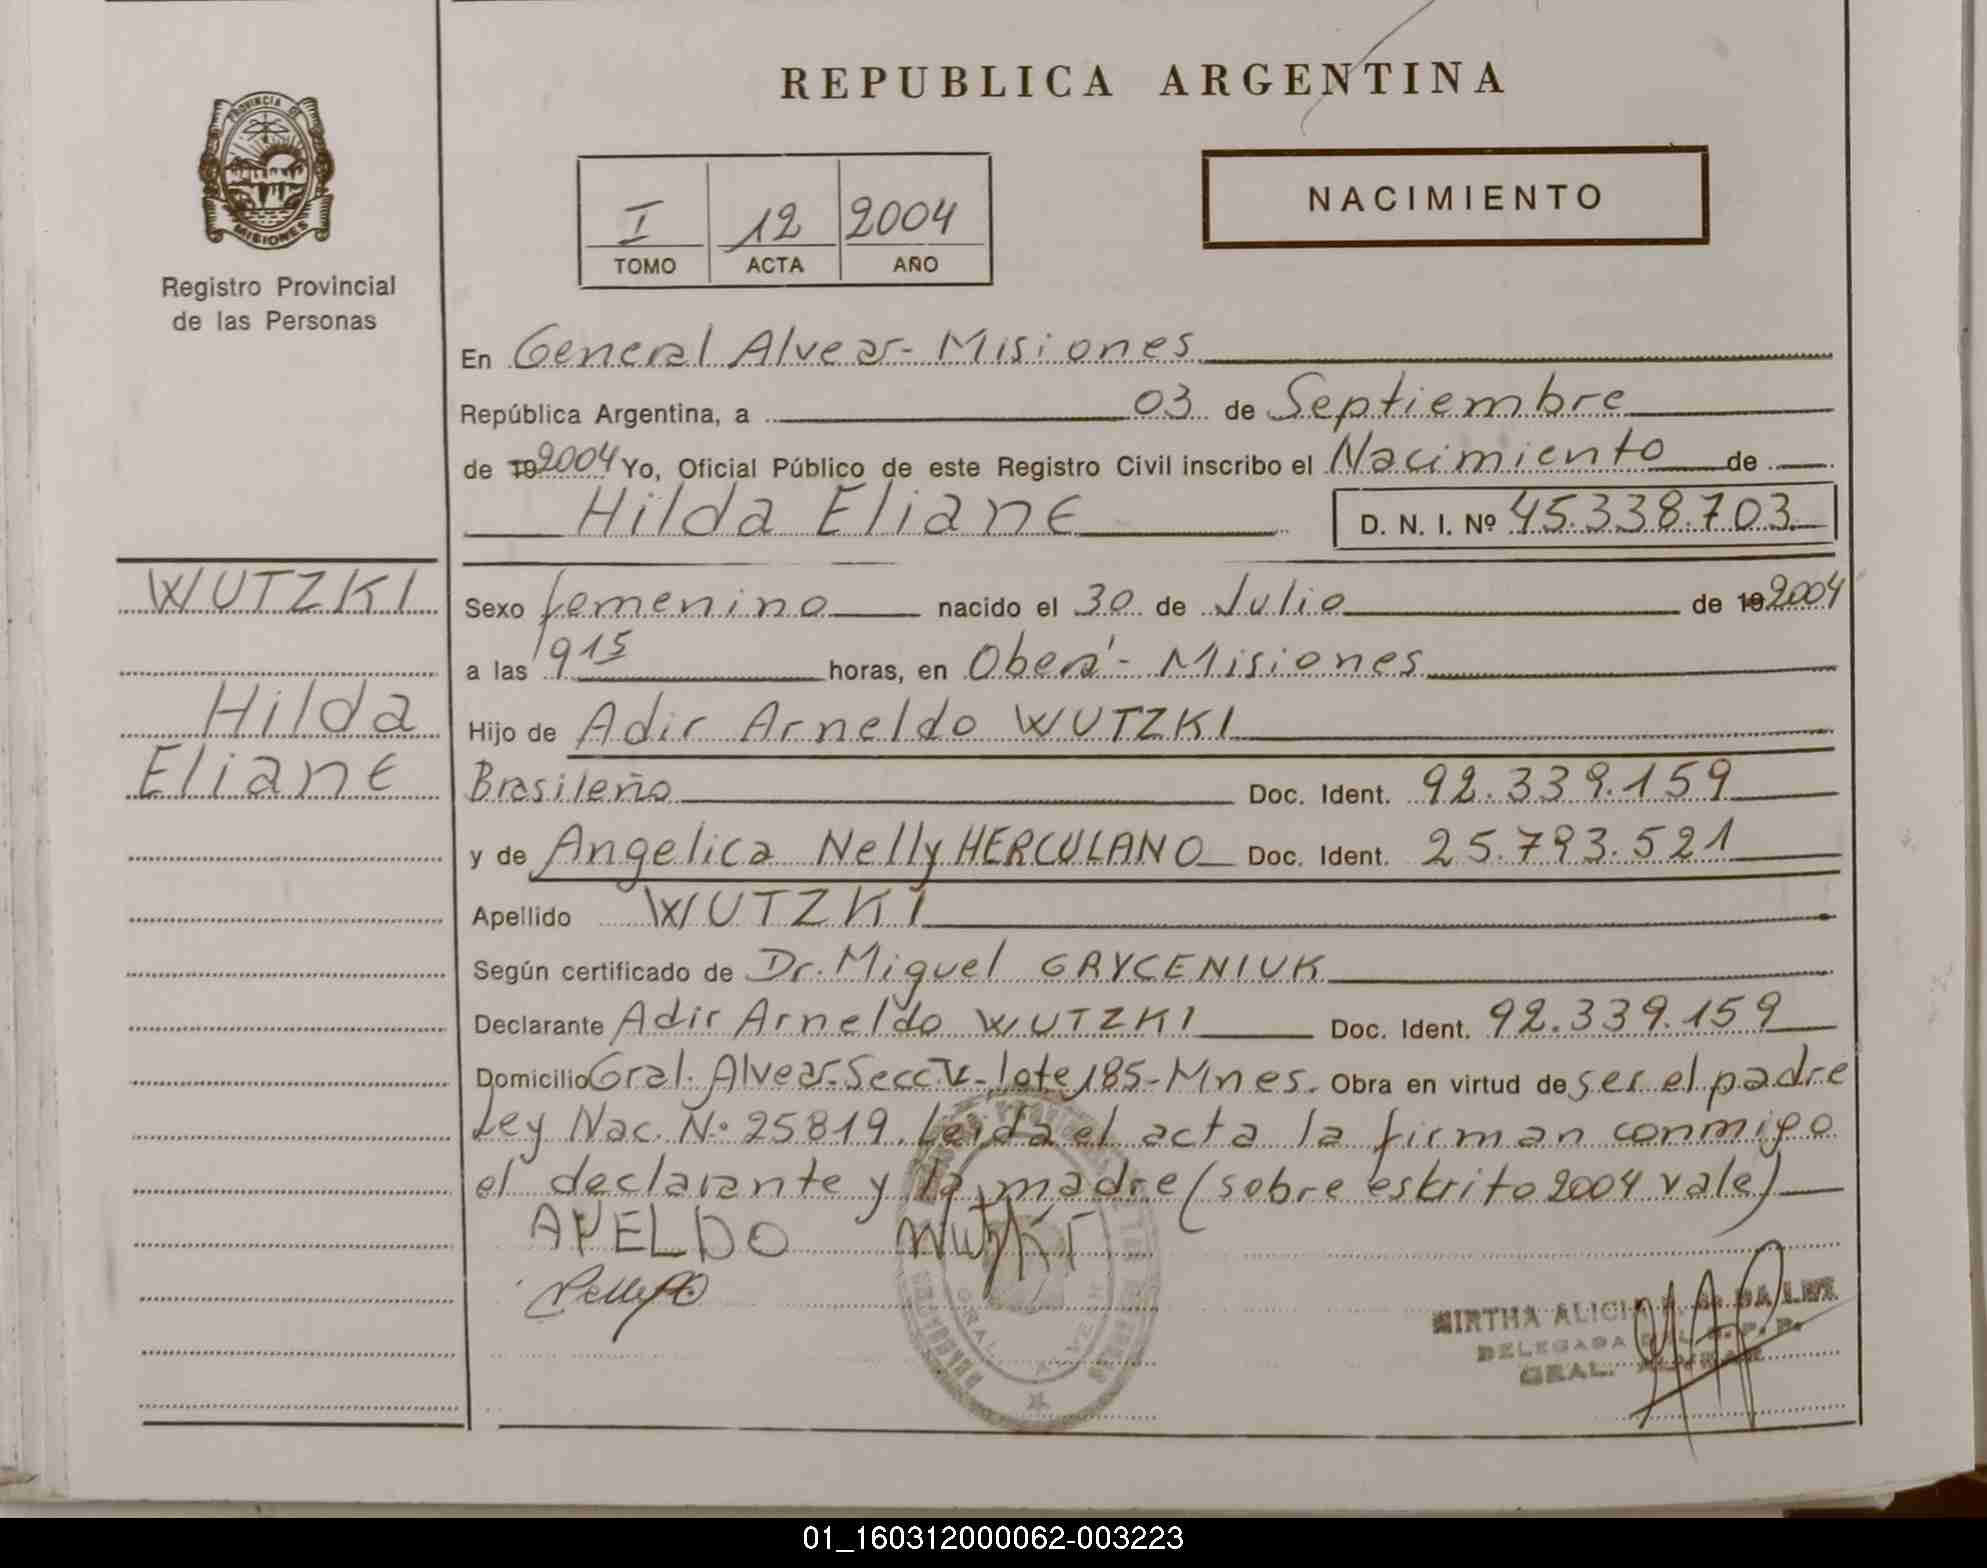 REPUBLICA ARGENTINA
PROVINCIA DE
MISIONES
Registro Provincial
de las Personas
I 12 2004
TOMO ACTA AÑO
NACIMIENTO
En General Alvear - Misiones
República Argentina, a 03 de Septiembre
de 19 2004 Yo, Oficial Público de este Registro Civil inscribo el Nacimiento de
Hilda Eliane D. N. I. Nº 45.338.703
WUTZKI
Hilda
Eliane
Sexo femenino nacido el 30 de Julio de 19 2004
a las 19 15 horas, en Oberá - Misiones
Hijo de Adir Arneldo WUTZKI
Brasileño Doc. Ident. 92.339.159
y de Angelica Nelly HERCULANO Doc. Ident. 25.793.521
Apellido WUTZKI
Según certificado de Dr. Miguel GRYCENIUK
Declarante Adir Arneldo WUTZKI Doc. Ident. 92.339.159
Domicilio Gral. Alvear - Secc - lote 185 - Mnes. Obra en virtud de ser el padre
Ley Nac. Nº 25819. Leida el acta la firman conmigo
el declarante y la madre (sobre eskrito 2004 vale)
MIRTHA ALICIA
DELEGADA DEL R. P. P.
GRAL. ALVEAR
01_160312000062-003223